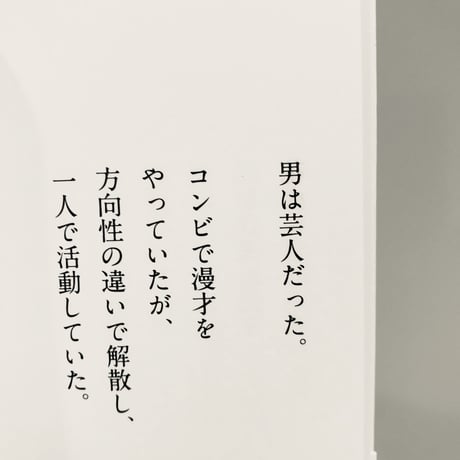 男は芸人だった。
コンビで漫才を
やっていたが、
方向性の違いで解散し、
一人で活動していた。